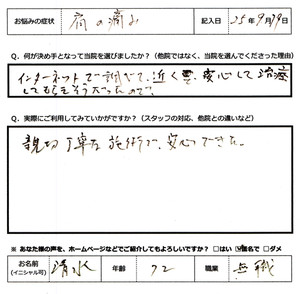 お悩みの症状 肩の痛み 記入日 25年9月19日
Q. 何が決め手となって当院を選びましたか?(他院ではなく、当院を選んでくださった理由)
インターネットで調べて、近く、安心して治療
してもらえそうだったので。
Q. 実際にご利用してみていかがですか?(スタッフの対応、他院との違いなど)
親切丁寧な施術で、安心できた。
※ あなた様の声を、ホームページなどでご紹介してもよろしいですか? □はい ☑匿名で □ダメ
お名前(イニシャル可) 清水 年齢 72 職業 無職